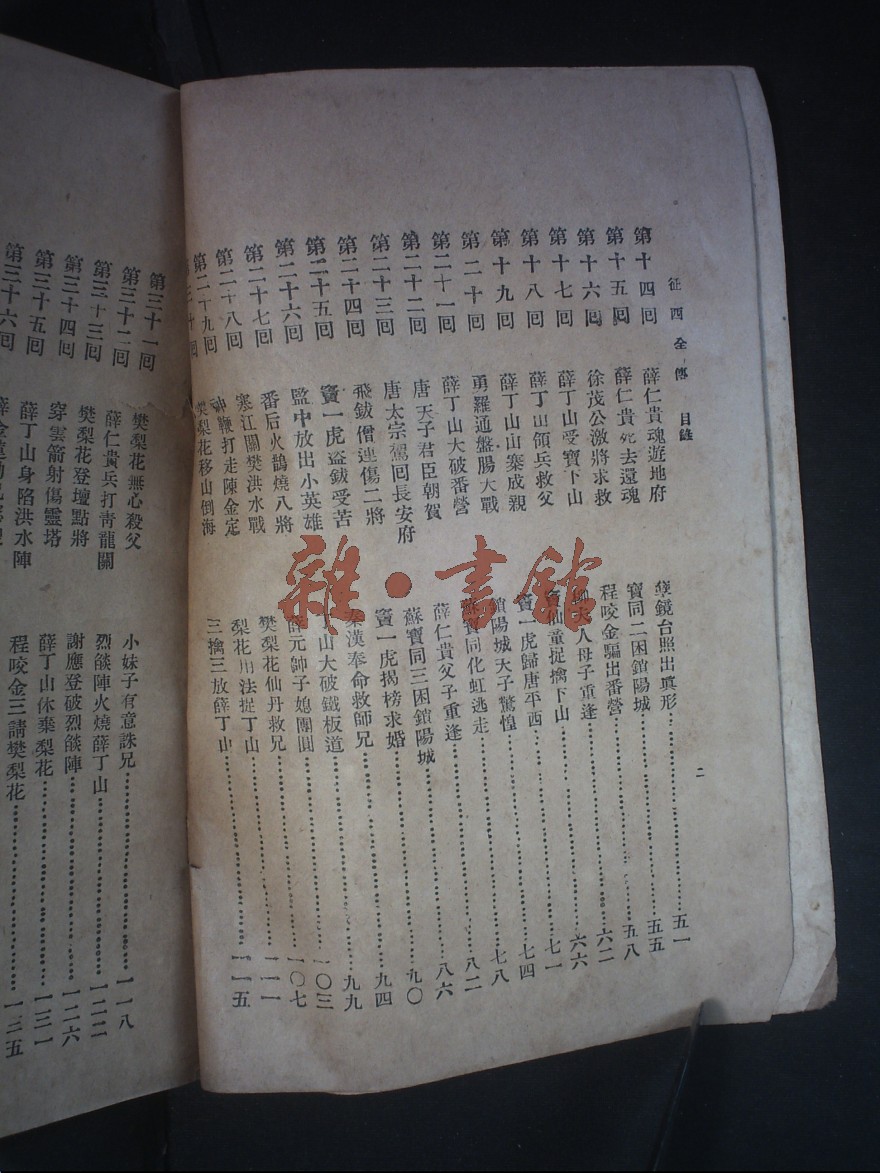 征西全傳 目錄 二
第十四囘 薛仁貴魂遊地府 孽鏡台照出真形 五一
第十五囘 薛仁貴死去還魂 寶同二困鎖陽城 五五
第十六囘 徐茂公激將求救 程咬金騙出番營 五八
第十七囘 薛丁山受寶下山 柳夫人母子重逢 六二
第十八囘 薛丁山領兵救父 竇仙童捉擒下山 六六
第十九囘 薛丁山山寨成親 竇一虎歸唐平西 七一
第二十囘 勇羅通盤腸大戰 鎖陽城天子驚惶 七四
第二十一囘 薛丁山大破番營 寶同化虹逃走 七八
第二十二囘 唐天子君臣朝賀 薛仁貴父子重逢 八二
第二十三囘 唐太宗駕囘長安府 蘇寶同三困鎖陽城 八六
第二十四囘 飛鈸僧連傷二將 竇一虎揭榜求婚 九〇
第二十五囘 竇一虎盜鈸受苦 秦漢奉命救師兄 九四
第二十六囘 監中放出小英雄 丁山大破鐵板道 九九
第二十七囘 番后火鵲燒八將 薛元帥子媳團圓 一〇三
第二十八囘 寒江關樊洪水戰 樊梨花仙丹救兄 一〇七
第二十九囘 神鞭打走陳金定 梨花用法捉丁山 一一一
第三十囘 樊梨花移山倒海 三擒三放薛丁山 一一五
第三十一囘 樊梨花無心殺父 小妹子有意誅兄 一一八
第三十二囘 薛仁貴兵打青龍關 烈燄陣火燒薛丁山 一二二
第三十三囘 樊梨花登壇點將 謝應登破烈燄陣 一二六
第三十四囘 穿雲箭射傷靈塔 薛丁山休棄梨花 一三一
第三十五囘 薛丁山身陷洪水陣 程咬金三請樊梨花 一三五
第三十六囘
雜·書館